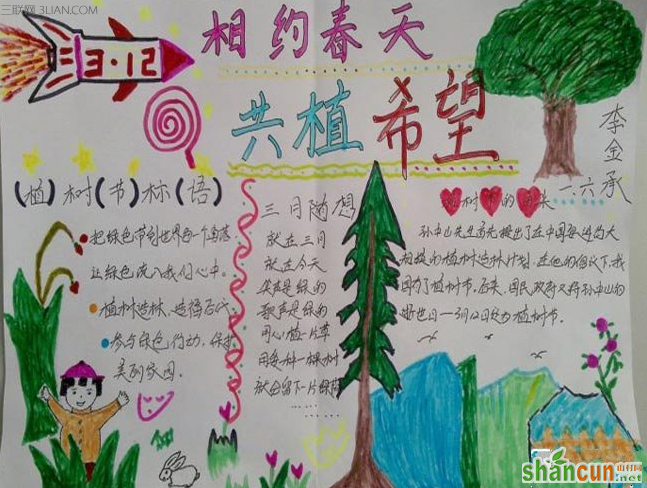 三联网 3LIAN.COM
3·12
相约春天
共植希望
李金承
一.六
(植)树(节)标(语)
把绿色带到世界每一个角落
让绿色流入我们心中。
植树造林,造福后代
参与绿色行动,保护
美丽家园。
三月随想
就在三月
就在今天
笑声是绿的
歌声是绿的
用心植一片草
用爱种一棵树
就会留下一片绿荫
……
植树节的由来
孙中山先生首先提出了在中国
植树造林计划.在他的倡议下,我
国有了植树节.后来,国民政府又将孙中山的
逝世日—3月12日定为植树节.
shancun
山村网
.net